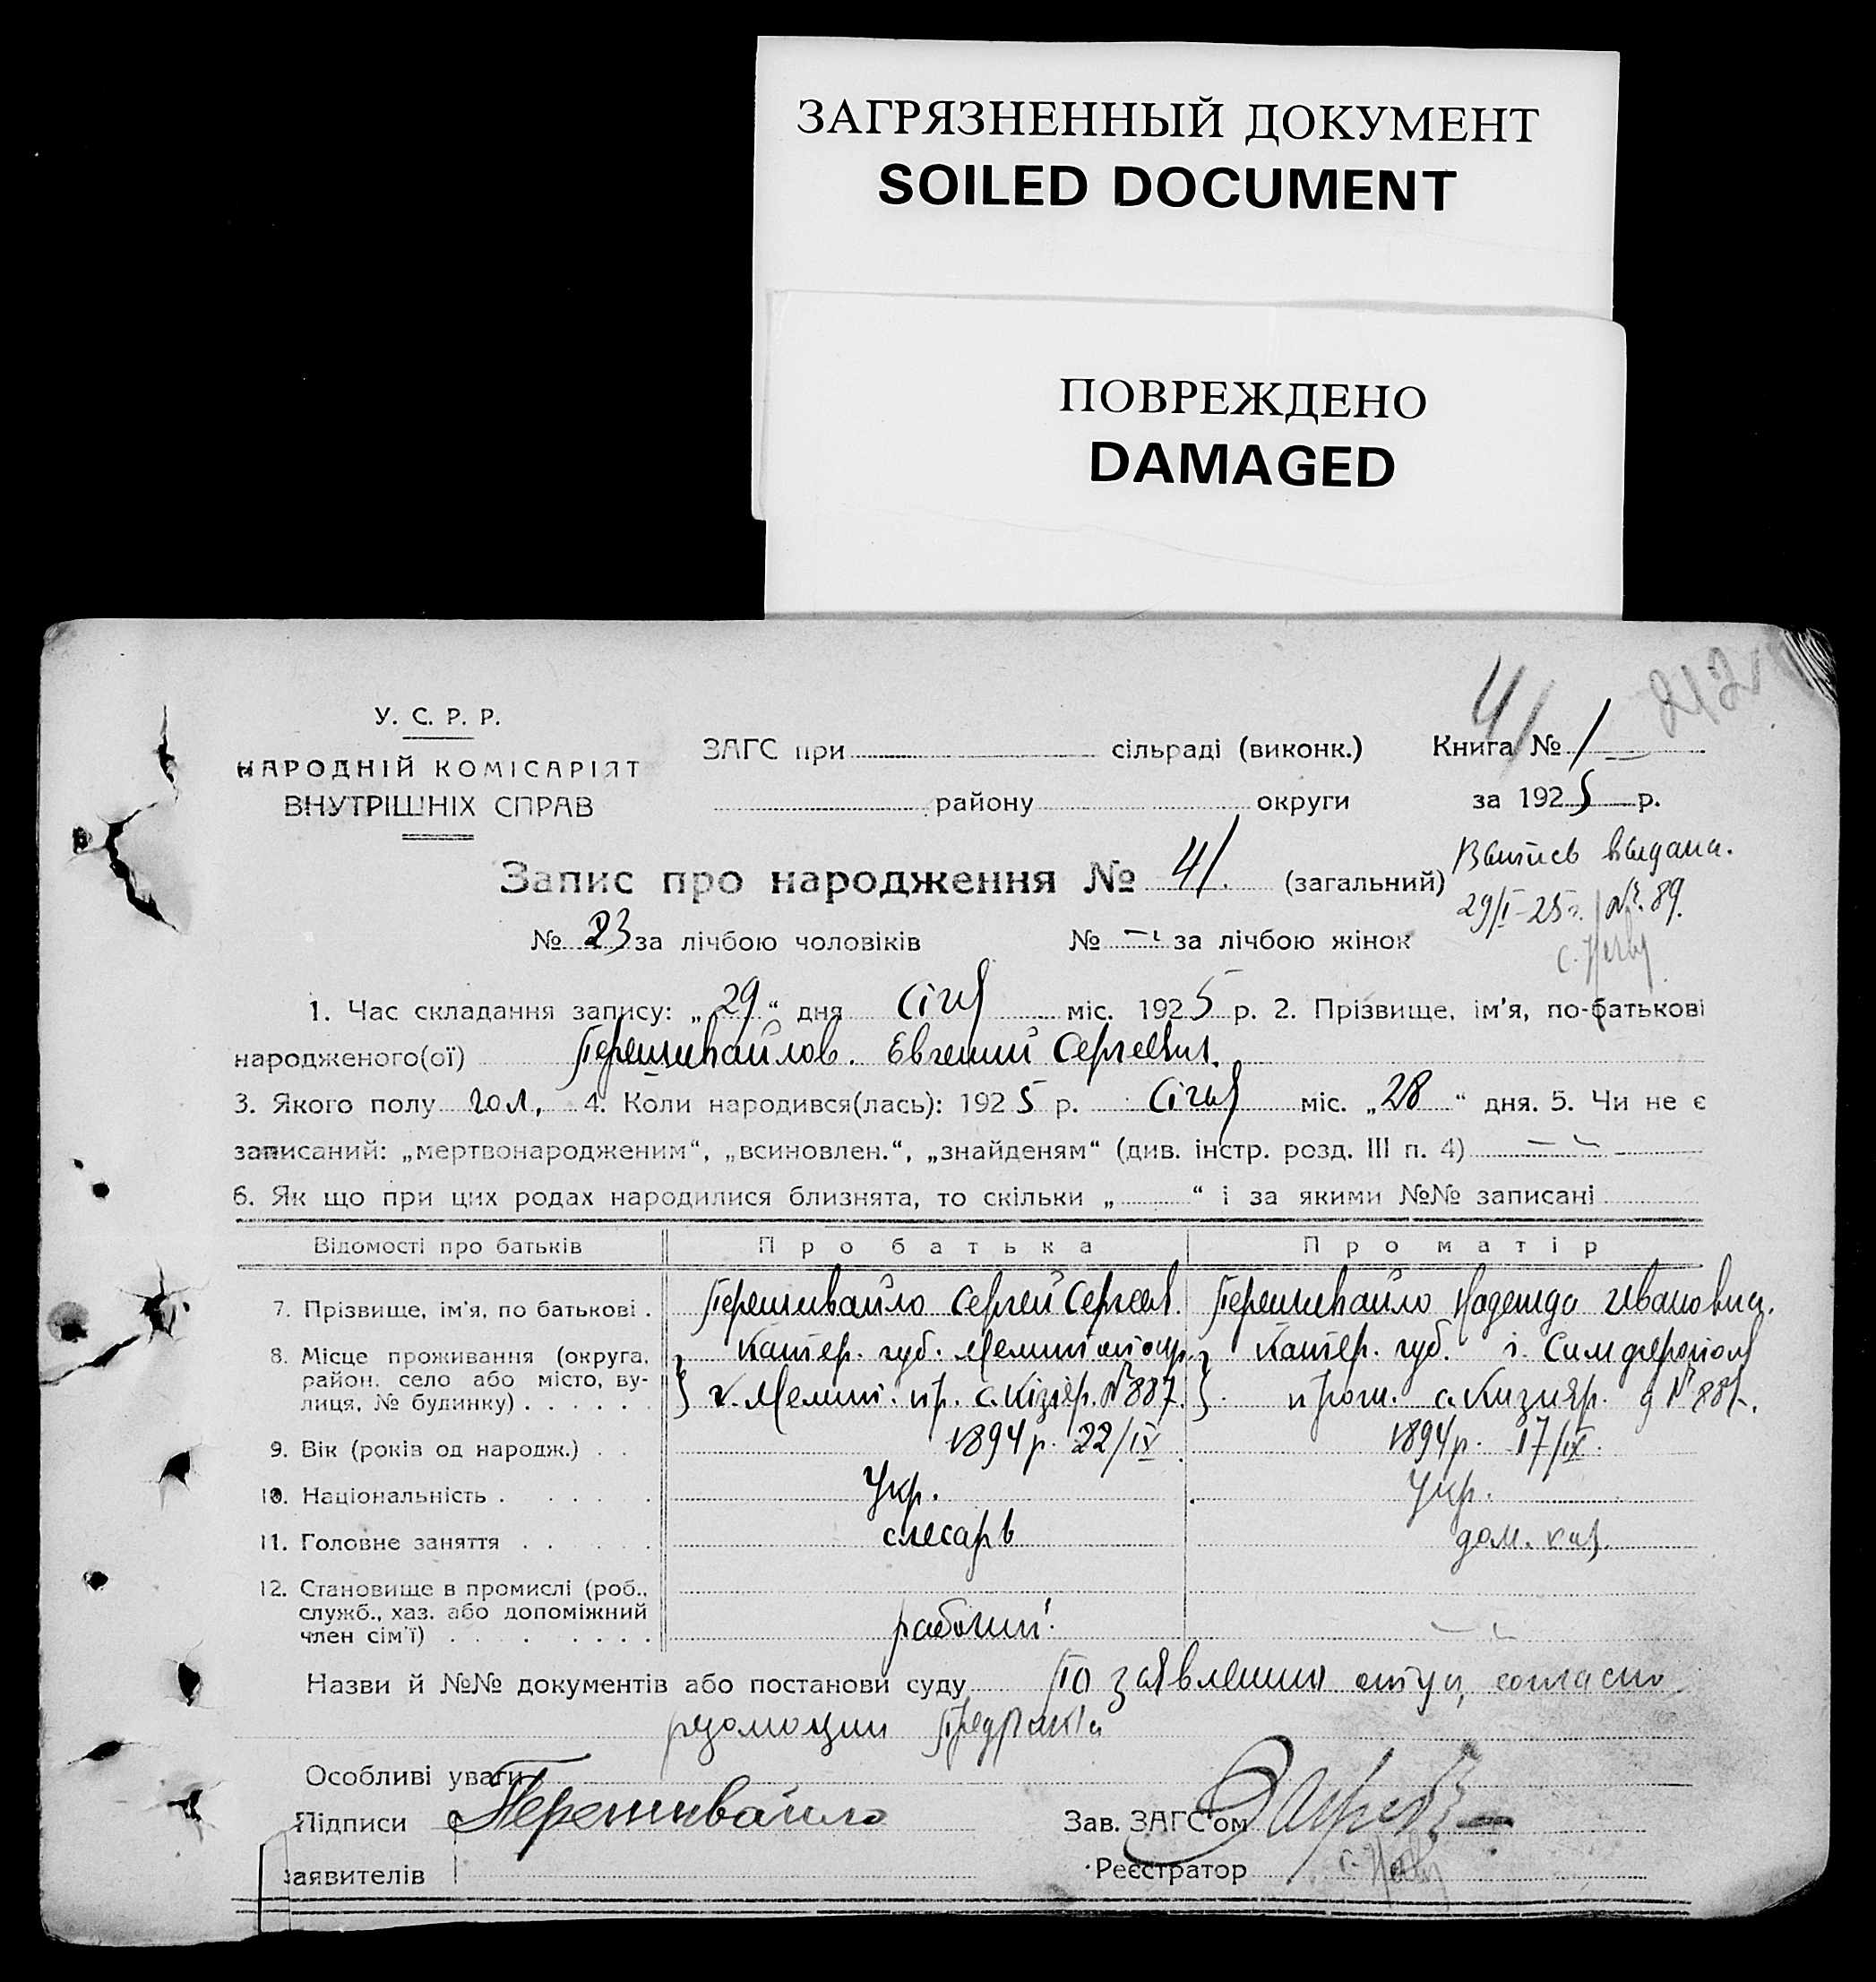 ЗАГРЯЗНЕННЫЙ ДОКУМЕНТ
SOILED DOCUMENT
ПОВРЕЖДЕНО
DAMAGED
41
212
У. С. Р. Р.
НАРОДНІЙ КОМІСАРІЯТ
ВНУТРІШНІХ СПРАВ
ЗАГС при сільраді (виконк.) Книга № 1
району округи за 1925 р.
Запис про народження № 41. (загальний)
Выпись выдана.
29/I-25г. №. 89.
№ 23 за лічбою чоловіків № — за лічбою жінок
1. Час складання запису: „29“ дня Січня міс. 1925 р. 2. Прізвище, ім'я, по-батькові
народженого(ої) Евгений Сергеевич.
3. Якого полу чол. 4. Коли народився(лась): 1925 р. Січня міс. „28“ дня. 5. Чи не є
записаний: „мертвонародженим“, „всиновлен.“, „знайденям“ (див. інстр. розд. III п. 4)
6. Як що при цих родах народилися близнята, то скільки „ “ і за якими №№ записані
Відомості про батьків Про батька Про матір
7. Прізвище, ім'я, по батькові . Перешивайло Сергей Сергеев. Перешивайло Надежда Ивановна.
8. Місце проживання (округа, Катер. губ. Катер. губ.
район. село або місто, ву-
лиця, № будинку) . . . . . . с. Кізіяр. № 887. с. Кизияр.
9. Вік (років од народж.) . . 1894 р. 22/IX 1894 р. 17/IX.
10. Національність . . . . . . Укр. Укр.
11. Головне заняття . . . . . . слесарь дом. хаз.
12. Становище в промислі (роб.,
служб., хаз. або допоміжний
член сім'ї) . . . . . . . . рабочий.
Назви й №№ документів або постанови суду По заявлению отца, согласно
резолюции
Особливі уваги
Підписи Перешивайло Зав. ЗАГС'ом
заявителів Реєстратор